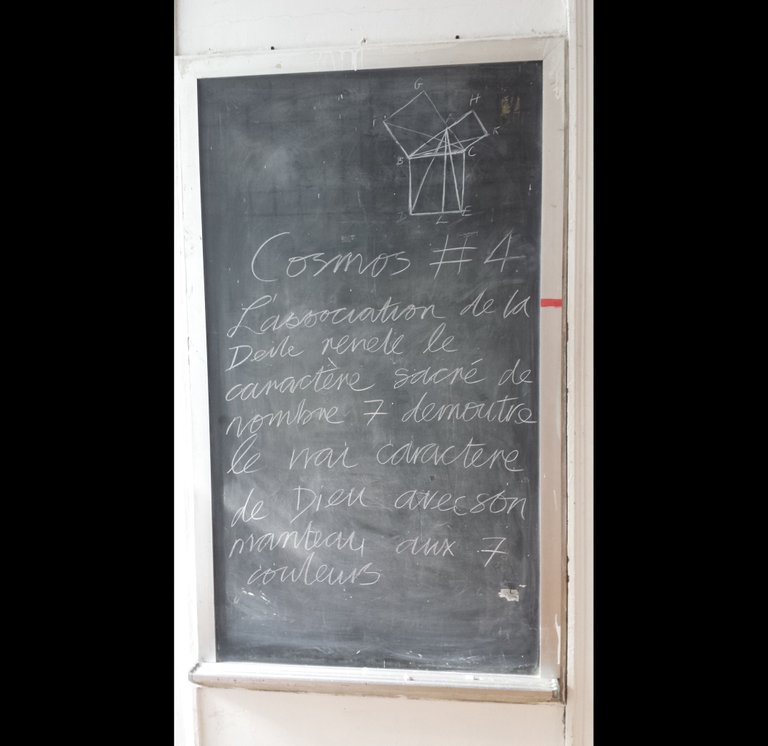 G
H
F
K
B
C
D
L
E
Cosmos # 4
L'association de la
Deile revele le
caractère sacré de
nombre 7 demoutre
le vrai caractere
de Dieu avec son
manteau aux 7
couleurs